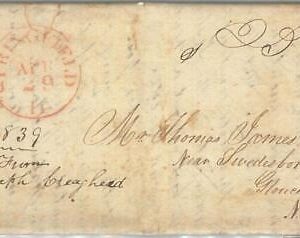 SPRINGFIELD
APR
29
1839
From
Joseph Creaghead
Mr Thomas James
Near Swedesbo
Glouce
N